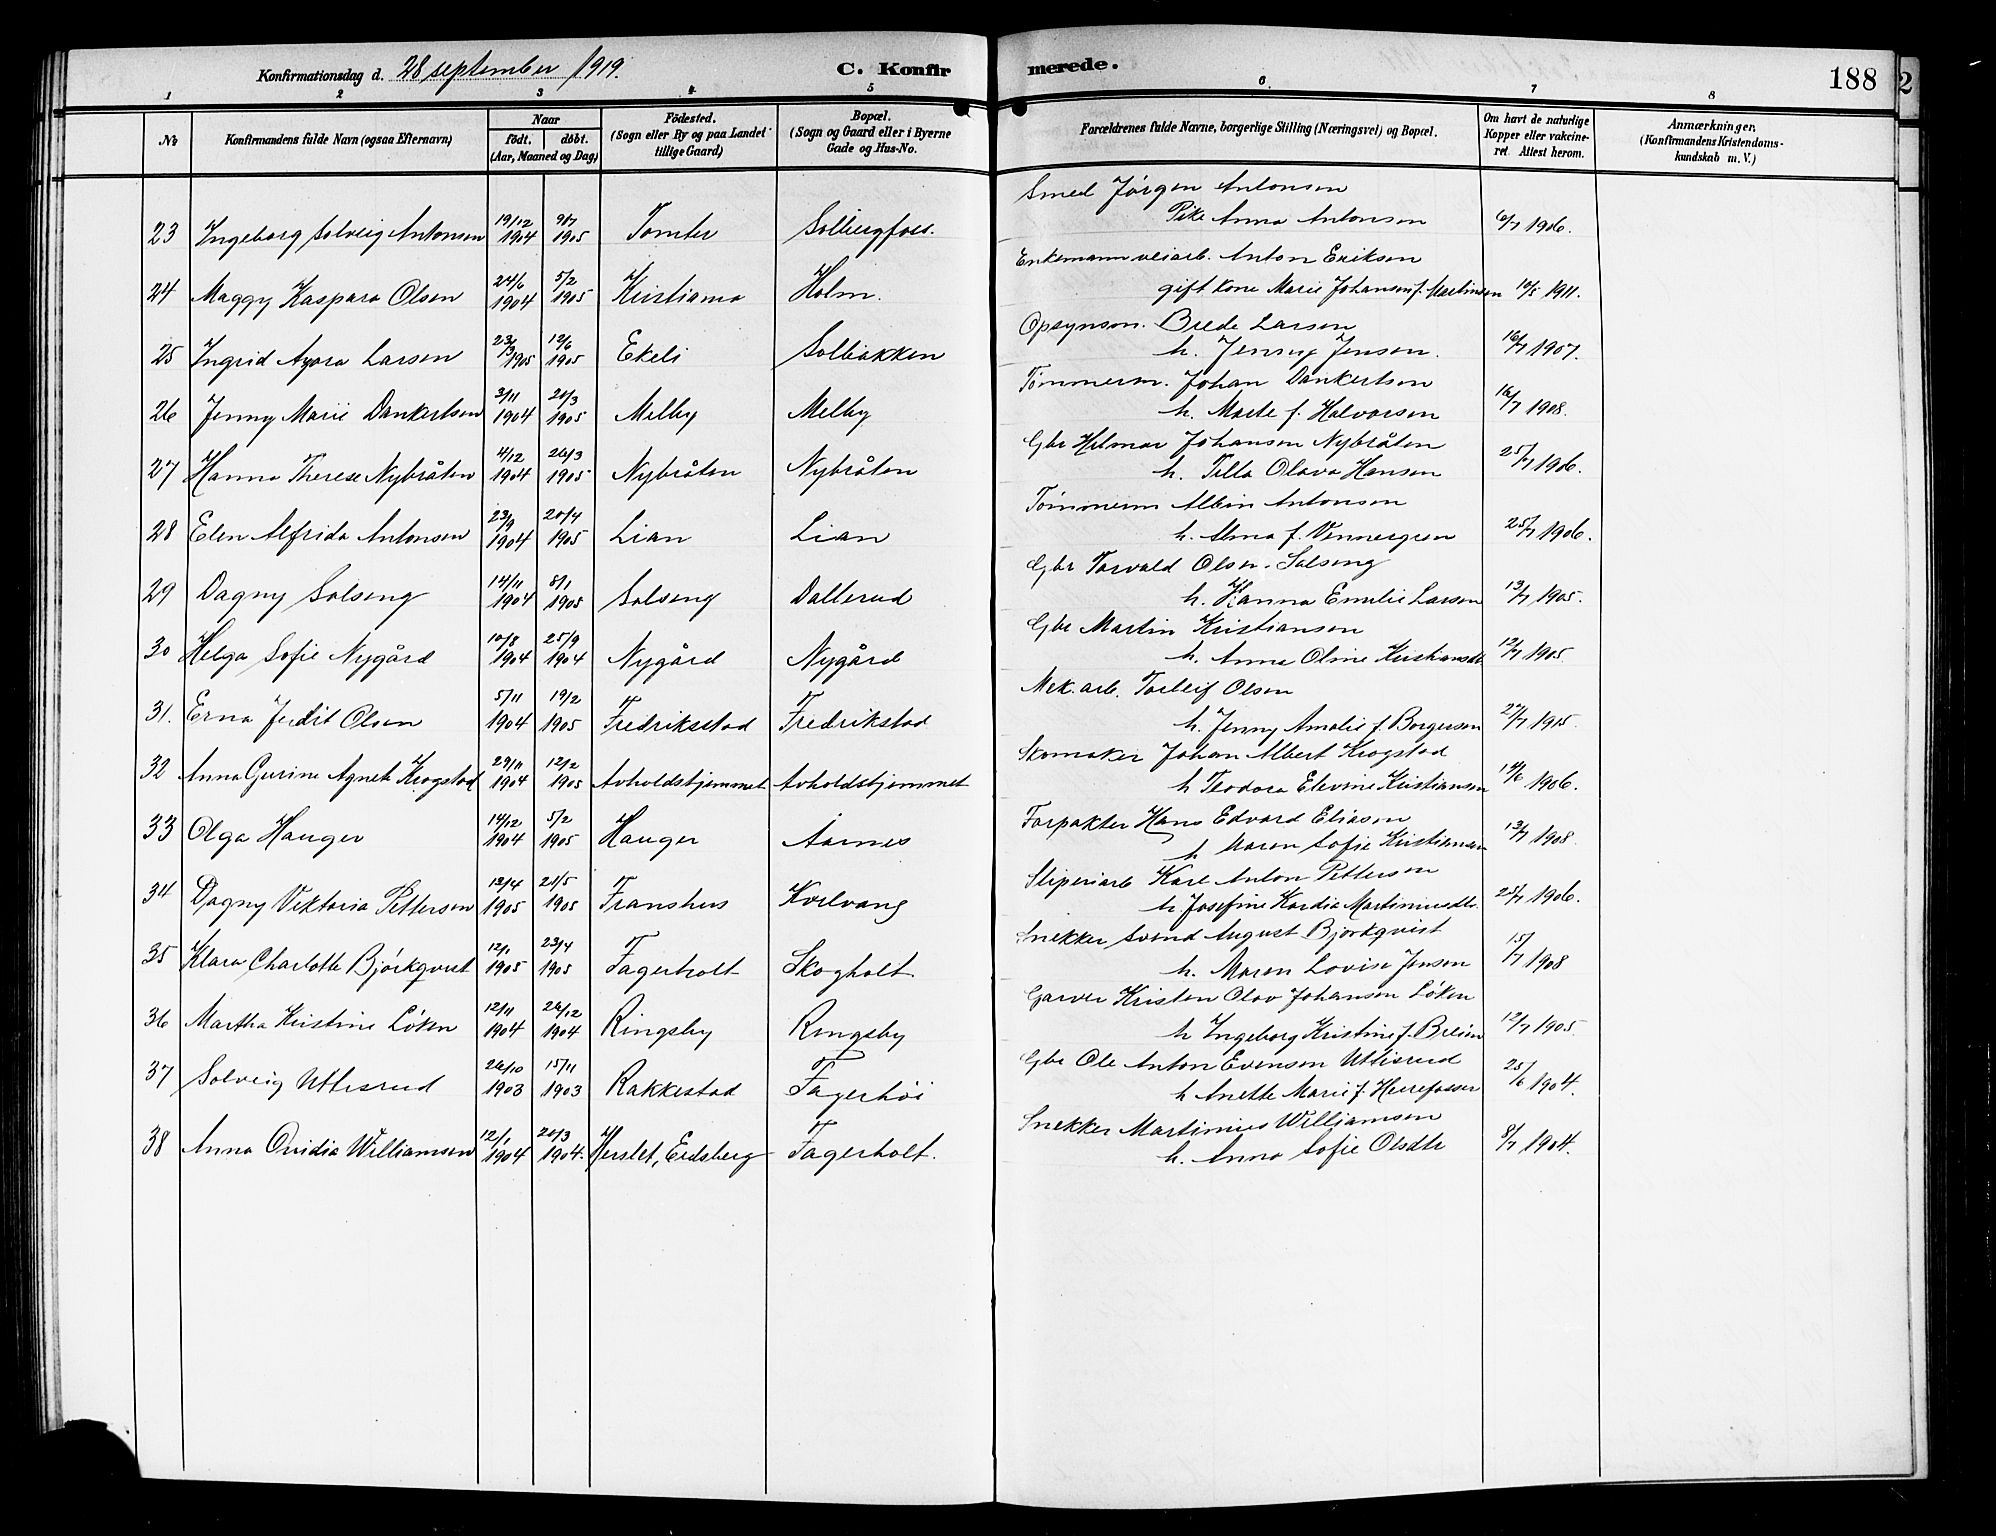 Konfirmationsdag d. 28 september 1919.
C. Konfirmerede.
188
2
1 2 3 4 5 6. 7 8
No
Konfirmandens fulde Navn (ogsaa Efternavn)
Naar
födt. döbt.
(Aar, Maaned og Dag)
Födested.
(Sogn eller By og paa Landet tillige Gaard)
Bopæl.
(Sogn og Gaard eller i Byerne Gade og Hus-No.
Forældrenes fulde Navne, borgerlige Stilling (Næringsvei) og Bopæl.
Om havt de naturlige Kopper eller vakcineret. Attest herom.
Anmærkninger.
(Konfirmandens Kristendomskundskab m. V.)
23 Ingeborg Solveig Antonsen 19/12 1904 9/7 1905 Tomter Solbergfoss. Smed Jørgen Antonsen
Pike Anna Antonsen 6/7 1906.
24 Maggy Kaspara Olsen 24/6 1904 5/2 1905 Kristiania Holm. Enkemann veiarb. Anton Eriksen
gift kone Marie Johansen f. Martinsen 10/5 1911.
25 Ingrid Agora Larsen 23/3 1905 12/6 1905 Ekeli Solbakken Opsynsm. Brede Larsen
h. Jenny Jensen. 16/7 1907.
26 Jenny Marie Dankertsen 3/11 1904 20/3 1905 Melby Melby Tømmerm. Johan Dankertsen
h. Marte f. Halvorsen 16/7 1908.
27 Hanna Therese Nybråten 4/12 1904 26/3 1905 Nybråten Nybråten Gbr Helmar Johansen Nybråten
h. Tilla Olava Hansen 25/7 1906.
28 Elen Alfrida Antonsen 23/9 1904 20/4 1905 Lian Lian Tømmerm Albin Antonsen
h. Alma f. Vennergren 25/7 1906.
29 Dagny Solseng 14/11 1904 8/1 1905 Solseng Dallerud Gbr Torvald Olsen. Solseng
h. Hanna Emilie Larsen 13/7 1905.
30 Helga Sofie Nygård 10/8 1904 25/9 1904 Nygård Nygård Gbr Martin Kristiansen
h. Anna Oline Kristiansdtr 12/7 1905.
31. Erna Judit Olsen 5/11 1904 19/2 1905 Fredriksstad Fredrikstad Mek. arb. Torleif Olsen
h. Jenny Amalie f. Borgersen 27/7 1915.
32 Anna Gurine Agnete Krogstad 29/11 1904 12/2 1905 Avholdshjemmet Avholdshjemmet Skomaker Johan Albert Krogstad
h Teodora Elevine Kristiansen 14/6 1906.
33 Olga Hauger 14/12 1904 5/2 1905 Hauger Aarnes Forpakter Hans Edvard Eliasen
h Maren Sofie Kristiansen 13/7 1908
34 Dagny Viktoria Pettersen 12/4 1905 21/5 1905 Franshus Kvelvang Sliperiarb Karl Anton Pettersen
h Josefine Kordia Martiniusdtr. 25/7 1906.
35 Klara Charlotte Bjørkqvist 12/1 1905 23/4 1905 Fagerholt Skogholt Snekker Svend August Bjørkqvist
h. Maren Lovise Jensen 15/7 1908
36 Martha Kristine Løken 12/11 1904 26/12 1904 Ringsby Ringsby Garver Kristen Olav Johansen Løken
h Ingeborg Kristine f. Breien 12/7 1905
37 Solveig Utlisrud 26/10 1903 15/11 1903 Rakkestad Fagerhøi Gbr Ole Anton Evensen Utlisrud
h Anette Marie f. Herrefosser 25/6 1904.
38 Anna Ovidia Williamsen 12/1 1904 20/3 1904. Herslet, Eidsberg Fagerholt. Snekker Martinius Williamsen
h. Anna Sofie Olsdtr 8/7 1904.